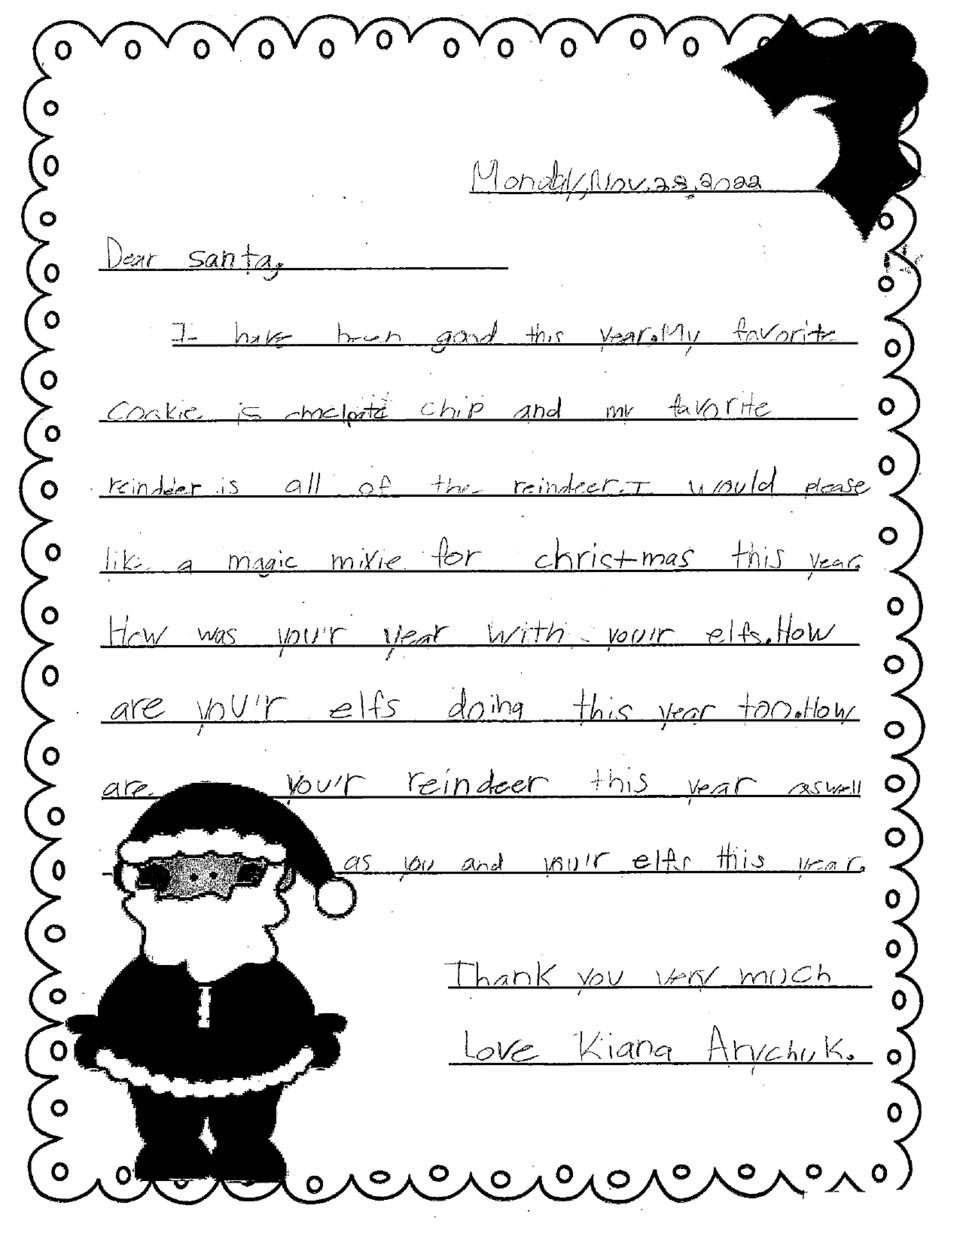 Monday, Nov. 28, 2022
Dear santa,
I have been good this year. My favorite
Cookie is choclate chip and my favorite
reindeer is all of the reindeer. I would please
like a magic mixie for christmas this year.
How was you'r year with you'r elfs. How
are you'r elfs doing this year too. How
are you'r reindeer this year aswell
as you and you'r elfs this year.
Thank you very much
Love Kiana Arychuk.